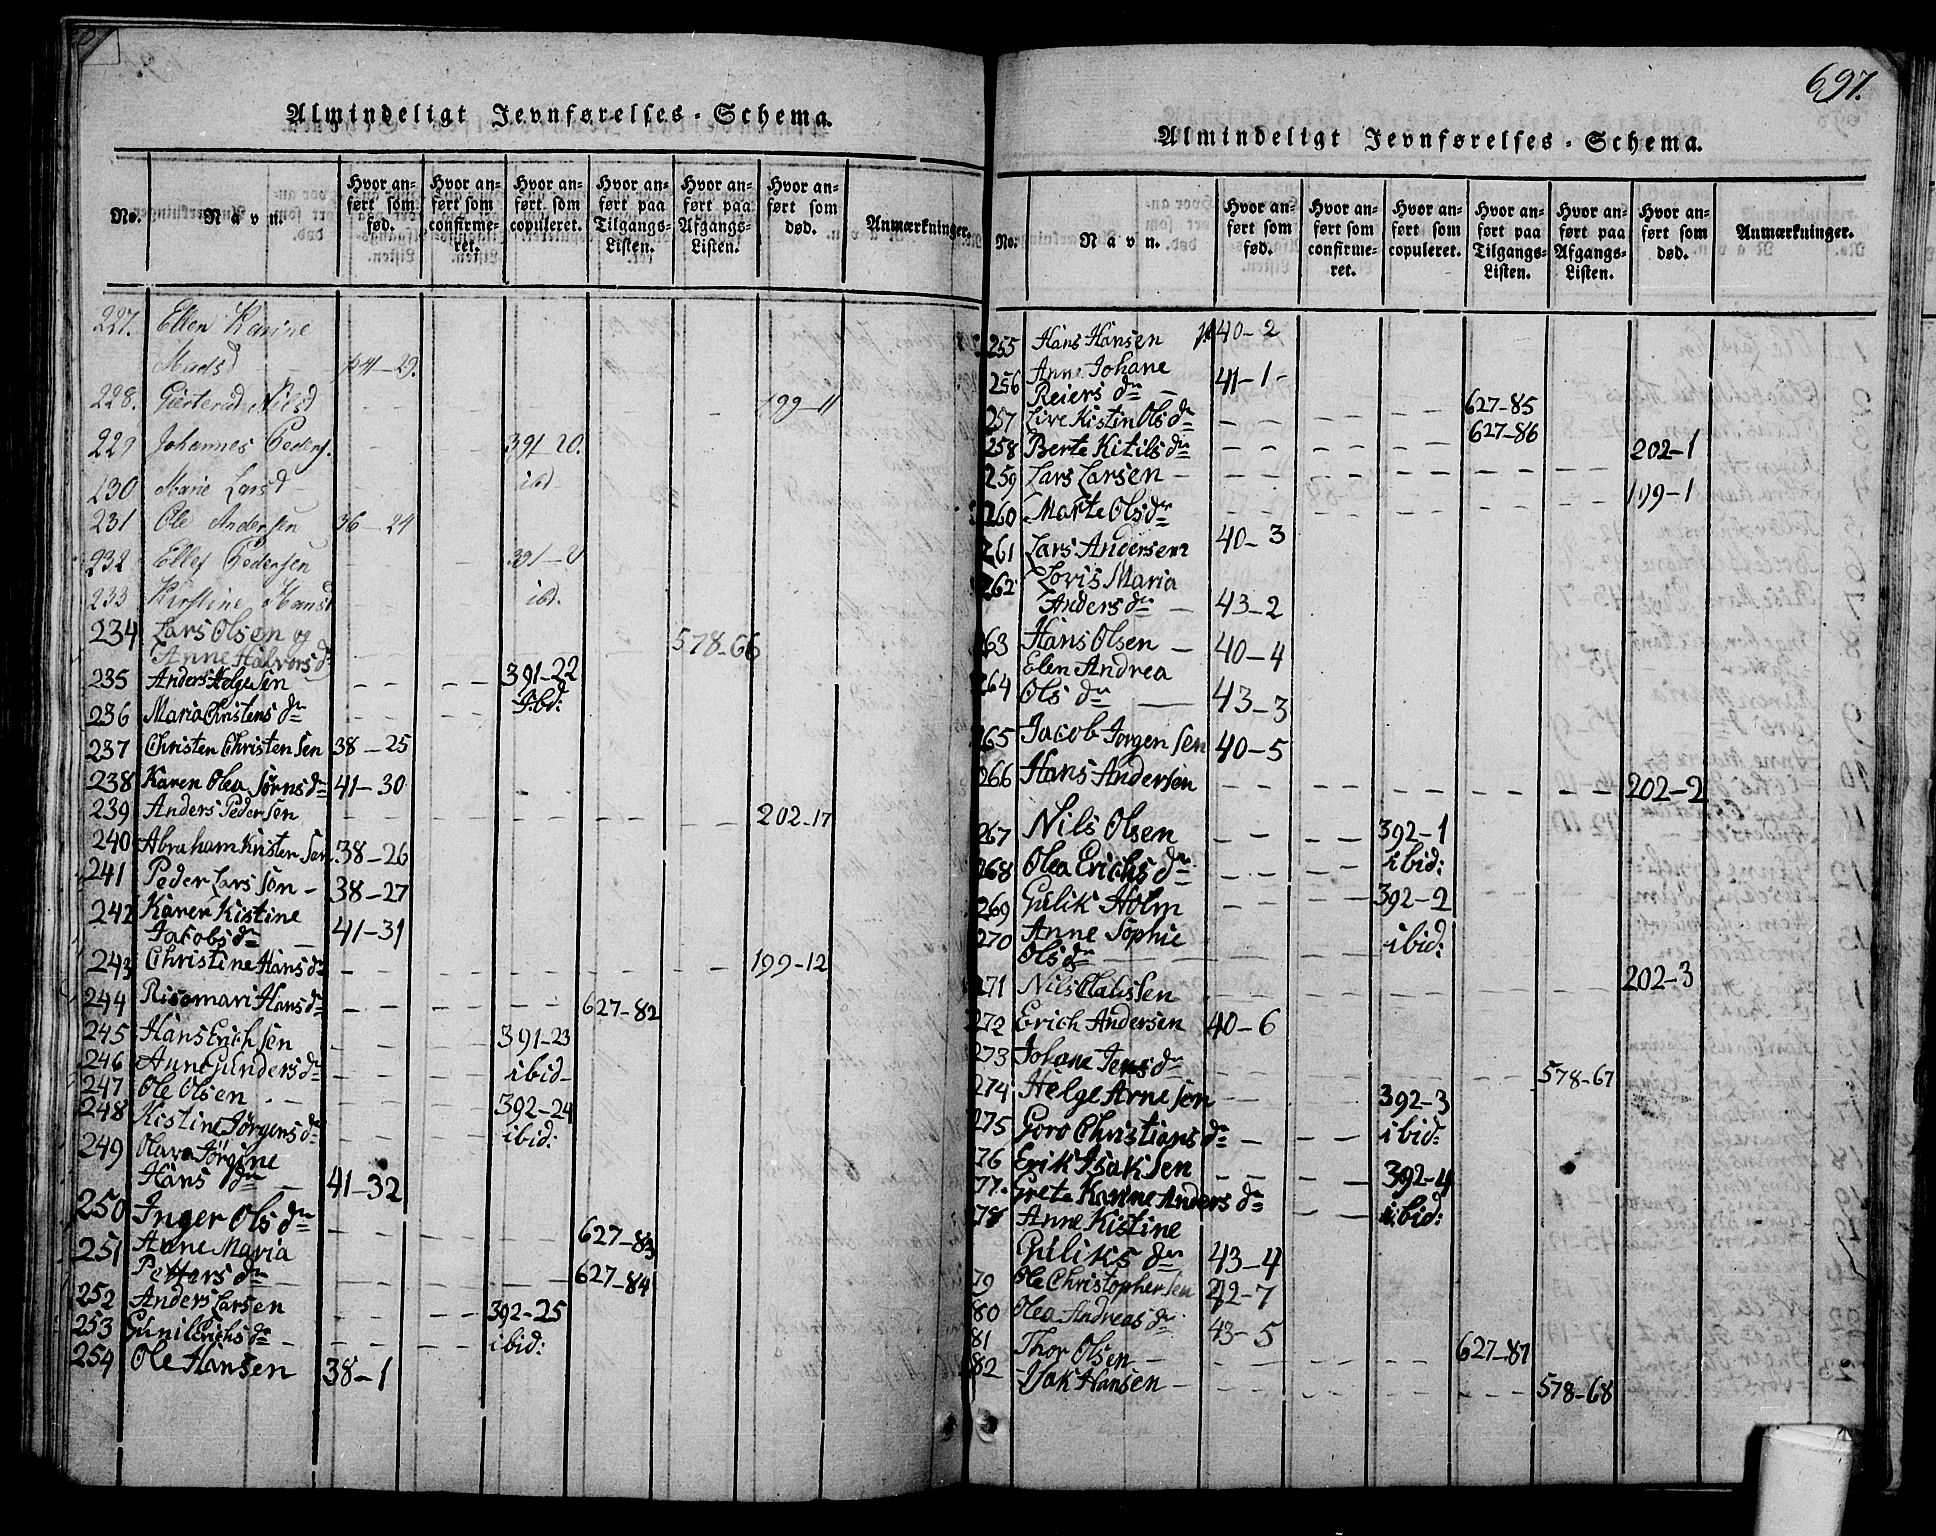 Almindeligt Jevnførelses-Schema.
No. Navn. Hvor anført som fød. Hvor anført som confirmeret. Hvor anført som copuleret. Hvor anført paa Tilgangs-Listen. Hvor anført paa Afgangs-Listen. Hvor anført som død. Anmærkninger.
227. Ellen Karine
Mads d 41-29.
228. Nils d 199-11
229 Johannes Peders. 391-20.
230 Marie Lars d ibd
231 Ole Andersen 36-24
232 Ellef Pedersen 391-21
233 Kirstine Hans d ibd.
234 Lars Olsen og
Anne Halvors d 578-66
235 Anders Helgesen 391-22
236 Maria Christens dr ibd:
237 Christen Christensen 38-25
238 Karen Olea Sørns dr 41-30
239 Anders Pedersen 202-17
240 Abraham Kristensen 38-26
241 Peder Larsson 38-27
242 Karen Kistine
Jacobs dr 41-31
243 Christine Hans dr 199-12
244 Risomari Hans dr 627-82
245 Hans Erichsen 391-23
246 Anne Gunders dr ibid
247 Ole Olsen 392-24
248 Kistine Jörgens dr ibid:
249 Olava Jörgine
Hans dr 41-32
250 Inger Ols dr 627-83
251 Anne Maria
Petters dr 627-84
252 Anders Larsen 392-25
253 Gunil Erichs dr ibid:
254 Ole Hansen 38-1
697.
Almindeligt Jevnførelses-Schema.
No. Navn. Hvor anført som fød. Hvor anført som confirmeret. Hvor anført som copuleret. Hvor anført paa Tilgangs-Listen. Hvor anført paa Afgangs-Listen. Hvor anført som død. Anmærkninger.
255 Hans Hansen 40-2
256 Anne Johane
Reiers dr 41-1
257 Live Kistin Ols dr 627-85
258 Berte Kitils dr 627-86
259 Lars Larsen 202-1
260 Marte Ols dr 199-1
261 Lars Andersen 40-3
262 Lovis Maria
Anders dr 43-2
263 Hans Olsen 40-4
264 Elen Andrea
Ols dr 43-3
265 Jacob Jorgensen 40-5
266 Hans Andersen 202-2
267 Nils Olsen 392-1
268 Olea Erichs dr ibid:
269 Gulik Holm 392-2
270 Anne Sophie
Ols dr ibid:
271 Nils Olaussen 202-3
272 Erich Andersen 40-6
273 Johane Jens dr 578-67
274 Helge Arneson 392-3
275 Goro Christians dr ibid:
76 Erik Isaksen 392-4
77. Grete Karine Anders dr ibid:
78 Anne Kistine
Guliks dr 43-4
79 Ole Christophersen 42-7
80 Olea Andreas dr 43-5
81 Thor Olsen 627-87
82 Isak Hansen 578-68